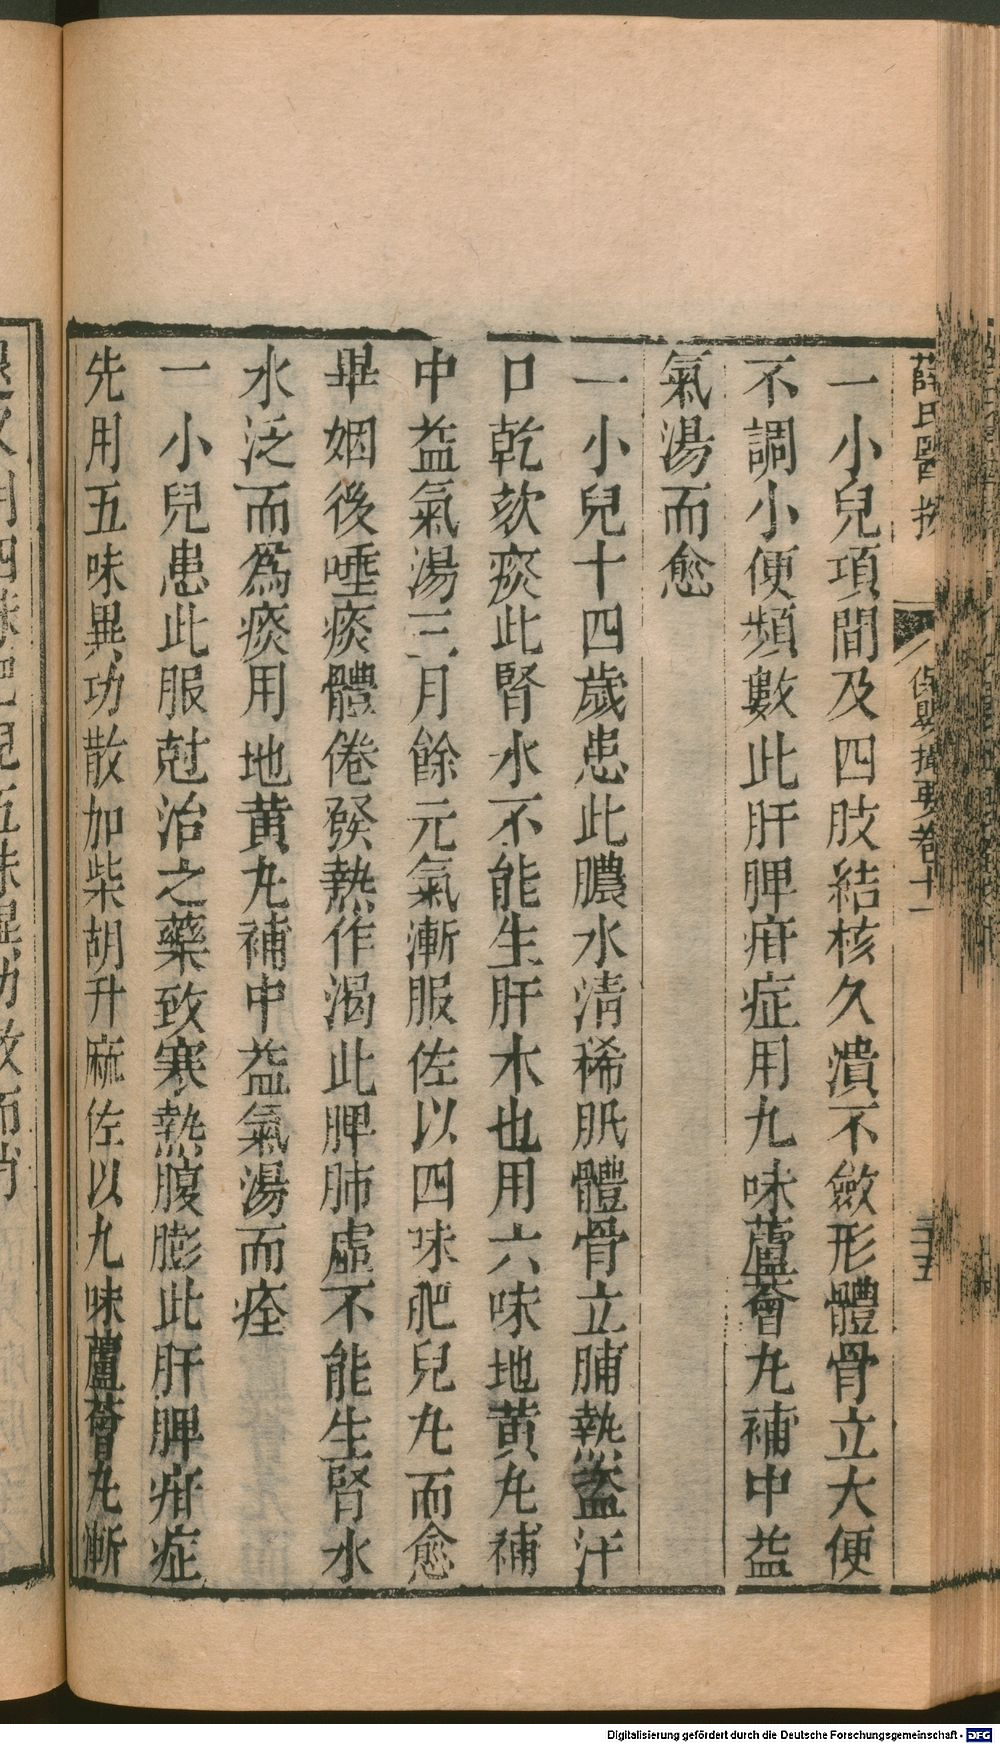 薛氏醫按 保嬰撮要卷十一 三十五
一小兒項間及四肢結核久潰不斂形體骨立大便
不調小便頻數此肝脾疳症用九味蘆薈丸補中益
氣湯而愈
一小兒十四歲患此膿水清稀肌體骨立脯熱盗汗
口乾欬痰此腎水不能生肝木也用六味地黄丸補
中益氣湯三月餘元氣漸服佐以四味肥兒丸而愈
畢姻後唾痰體倦發熱作渴此脾肺虛不能生腎水
水泛而爲痰用地黄丸補中益氣湯而痊
一小兒患此服尅治之藥致寒熱腹膨此肝脾疳症
先用五味異功散加柴胡升麻佐以九味蘆薈丸漸
四味肥兒五味異功散而消
Digitalisierung gefördert durch die Deutsche Forschungsgemeinschaft - DFG